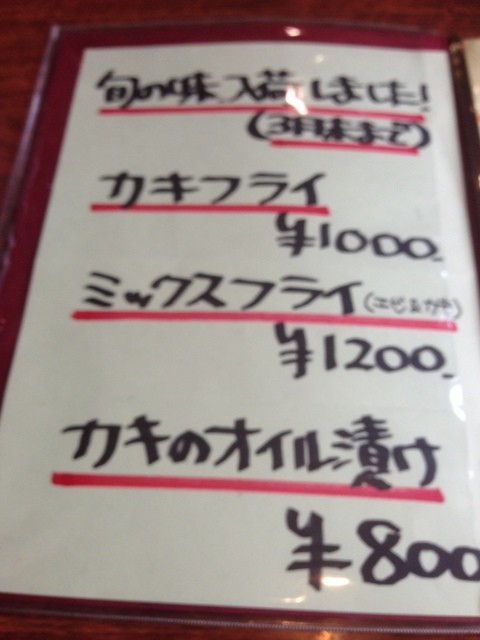 旬の味入荷しました!
(3月末まで)
カキフライ
¥1000.
ミックスフライ(エビ&カキ)
¥1200.
カキのオイル漬け
¥800